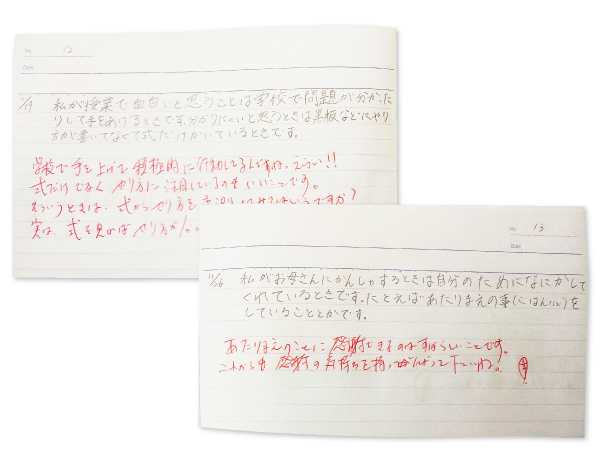 No. 12
Date
11/19 私が授業で面白いと思うことは学校で問題が分かった
りして手をあげるときです。分かりにくいと思うときは黒板などにやり
方が書いてなくて式だけかいているときです。
学校で手を上げて積極的に行動してるんですね。えらい!!
式だけでなくやり方に注目しているのもいいことです。
そういうときは、式からやり方を予測してみてはどうですか?
実は、式を見ればやり方が分か
No. 13
Date
11/26 私がお母さんにかんしゃするときは自分のためになにかして
くれているときです。たとえばあたりまえの事(ごはんなど)を
していることとかです。
あたりまえのことに感謝できるのはすばらしいことです。
これからも感謝の気持ちを持ってがんばって下さいね。